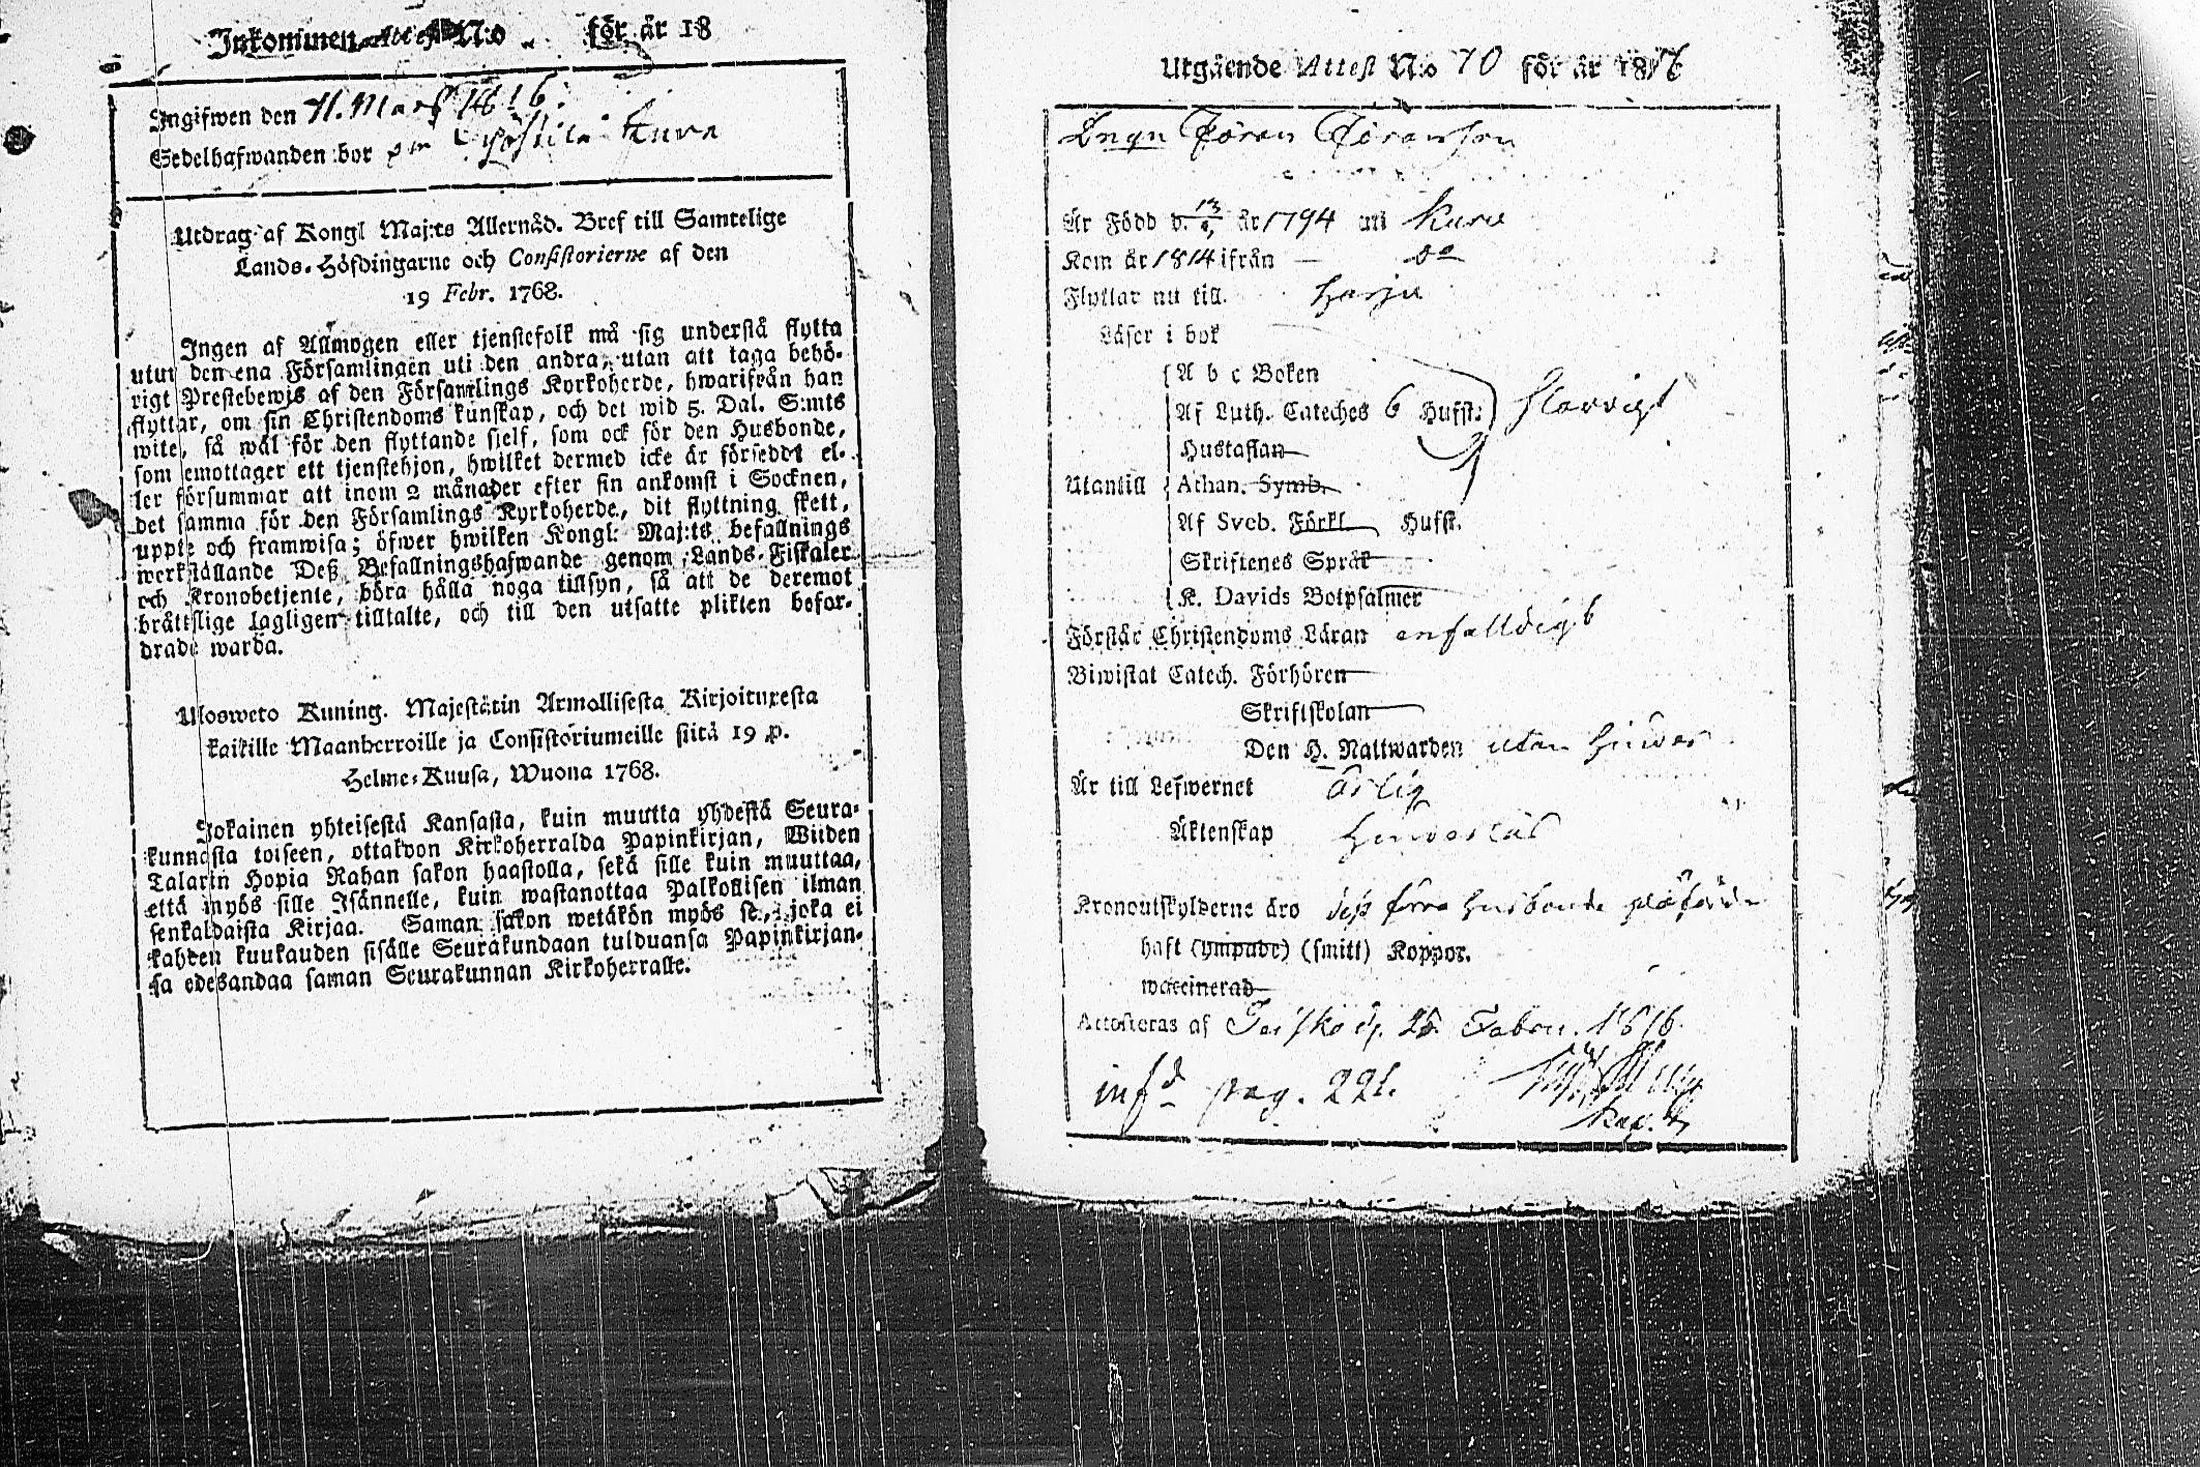 Inkommen Attest N:o för år 18
Ingifwen den 11. Mars 1816.
Sedelhafwanden bor på Kura
Utdrag af Kongl Maj:ts Allernåd. Bref till Samtelige
Lands-Höfdingarne och Consistorierne af den
19 Febr. 1768.
Ingen af Allmogen eller tjenstefolk må sig understå flytta
utur den ena Församlingen uti den andra, utan att taga behö-
rigt Prestebewis af den Församlings Kyrkoherde, hwarifrån han
flyttar, om sin Christendoms kunskap, och det wid 5. Dal. S:mts
wite, så wäl för den flyttande sjelf, som ock för den Husbonde,
som emottager ett tjenstehjon, hwilket dermed icke är förseddt el-
ler försummar att inom 2 månader efter sin ankomst i Socknen,
det samma för den Församlings Kyrkoherde, dit flyttning skett,
uppte och framwisa; öfwer hwilken Kongl: Maj:ts befallnings
werkställande Deß Befallningshafwande genom Lands-Fiskaler
och Kronobetjente, böra hålla noga tillsyn, så att de deremot
brättslige lagligen tilltalte, och till den utsatte plikten befor-
drade warda.
Ulosweto Kuning. Majestätin Armollisesta Kirjoituxesta
kaikille Maanherroille ja Consistoriumeille siitä 19 p.
Helme-Kuusa, Wuona 1768.
Jokainen yhteisestä Kansasta, kuin muutta yhdestä Seura-
kunnasta toiseen, ottakoon Kirkoherralda Papinkirjan, Wiiden
Talarin Hopia Rahan sakon haastolla, sekä sille kuin muuttaa,
että myös sille Isännelle, kuin wastanottaa Palkollisen ilman
senkaldaista Kirjaa. Saman sakon wetäkön myös se, joka ei
kahden kuukauden sisälle Seurakundaan tulduansa Papinkirjan-
sa edesandaa saman Seurakunnan Kirkoherralle.
Utgående Attest N:o 70 för år 1816
Drgn Jöran Jöransson
Är Född d. 13/ år 1794 uti Kuru
Kom år 1814 ifrån — do
Flyttar nu till. Harju
Läser i bok
A b c Boken
Af Luth. Cateches 6 Hufst. slarvigt
Hustaflan
Utantill Athan. Symb.
Af Sveb. Förkl. Hufst.
Skriftenes Språk
K. Davids Botpsalmer
Förstår Christendoms Läran enfalldigt
Biwistat Catech. Förhören
Skriftskolan
Den H. Nattwarden utan hinder
Är till Lefwernet ärlig
Äktenskap hinderlös
Kronoutskylderne äro förra husbonde påförde
haft (ympade) (smitt) Koppor.
waccinerad
Attesteras af Teisko d. 25 Febru. 1816.
inf.d pag. 221.
Kap.